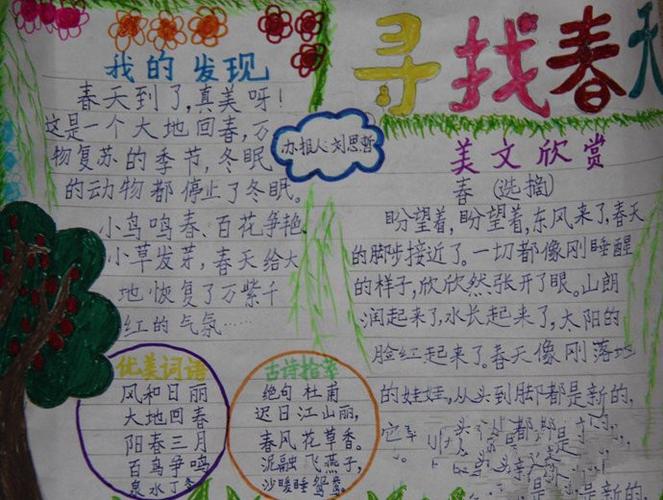 寻找春天
我的发现
春天到了，真美呀！
这是一个大地回春，万
物复苏的季节，冬眠
的动物都停止了冬眠。
小鸟鸣春、百花争艳、
小草发芽，春天给大
地恢复了万紫千
红的气氛……
办报人 刘思哲
美文欣赏
春（选摘）
盼望着，盼望着，东风来了，春天
的脚步接近了。一切都像刚睡醒
的样子，欣欣然张开了眼。山朗
润起来了，水长起来了，太阳的
脸红起来了。春天像刚落地
的娃娃，从头到脚都是新的，
它
优美词语
风和日丽
大地回春
阳春三月
百鸟争鸣
泉水丁冬
古诗拾萃
绝句 杜甫
迟日江山丽，
春风花草香。
泥融飞燕子，
沙暖睡鸳鸯。